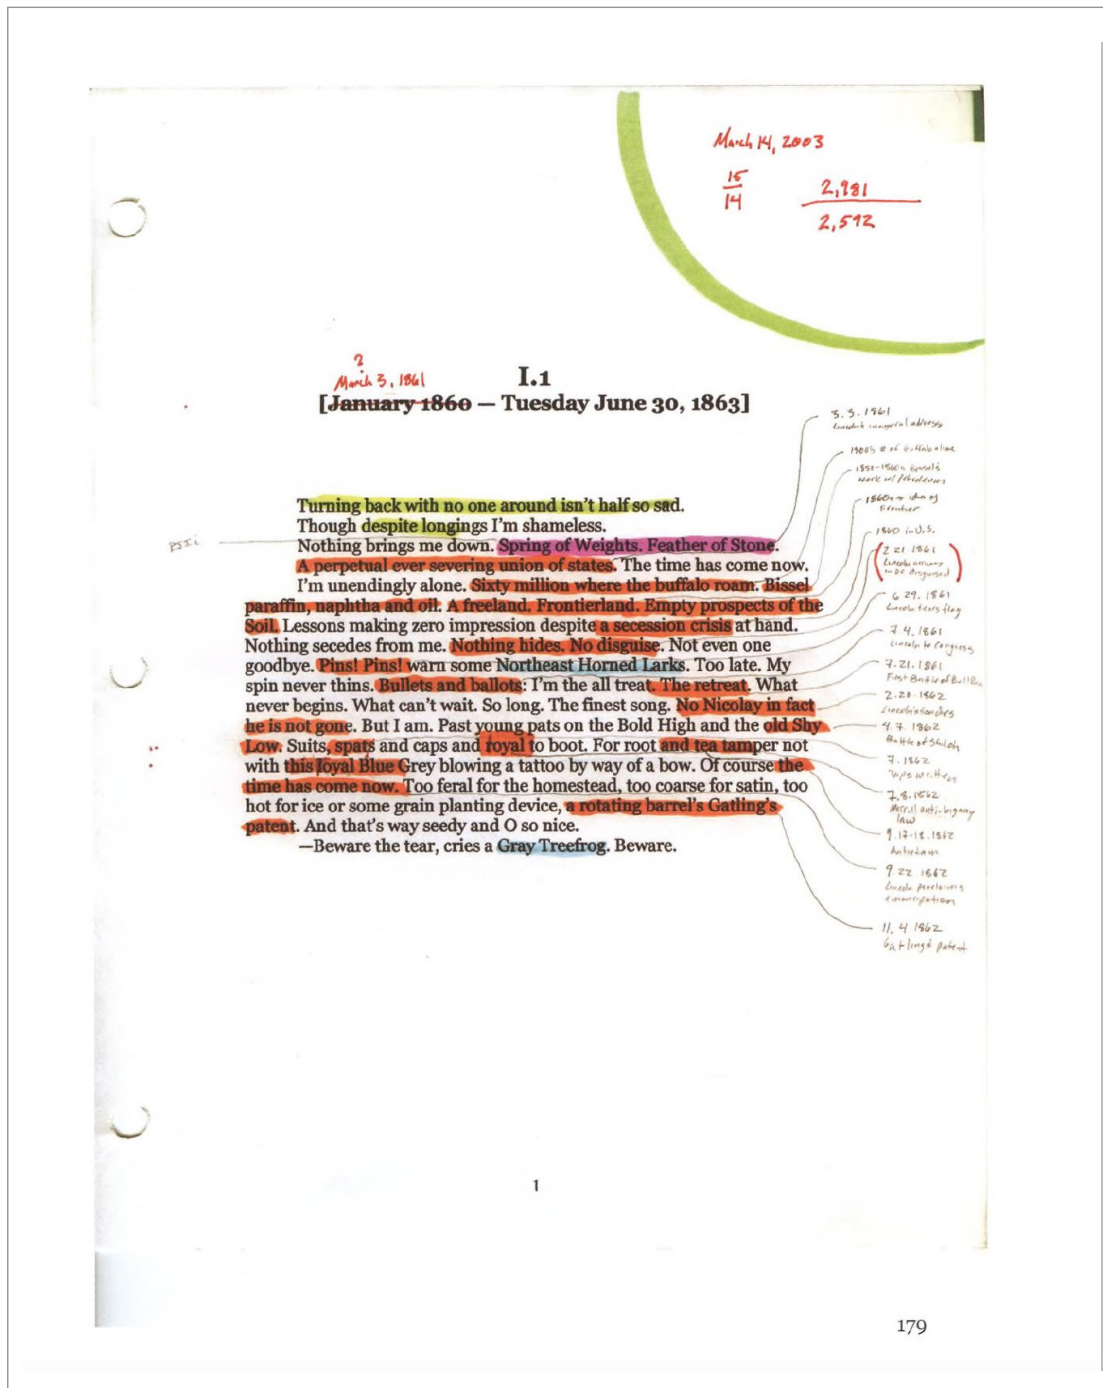 March 14, 2003
15
14
2,981
2,592
?
March 3, 1861
I.1
[January 1860 — Tuesday June 30, 1863]
Turning back with no one around isn’t half so sad.
Though despite longings I’m shameless.
Nothing brings me down. Spring of Weights. Feather of Stone.
A perpetual ever severing union of states. The time has come now.
I’m unendingly alone. Sixty million where the buffalo roam. Bissel
paraffin, naphtha and oil. A freeland. Frontierland. Empty prospects of the
Soil. Lessons making zero impression despite a secession crisis at hand.
Nothing secedes from me. Nothing hides. No disguise. Not even one
goodbye. Pins! Pins! warn some Northeast Horned Larks. Too late. My
spin never thins. Bullets and ballots: I’m the all treat. The retreat. What
never begins. What can’t wait. So long. The finest song. No Nicolay in fact
he is not gone. But I am. Past young pats on the Bold High and the old Shy
Low. Suits, spats and caps and royal to boot. For root and tea tamper not
with this loyal Blue Grey blowing a tattoo by way of a bow. Of course the
time has come now. Too feral for the homestead, too coarse for satin, too
hot for ice or some grain planting device, a rotating barrel’s Gatling’s
patent. And that’s way seedy and O so nice.
—Beware the tear, cries a Gray Treefrog. Beware.
3.3.1861
Lincoln's inaugural address
1800s # of buffalo alive
1850-1860s Bissel's
1860s → idea of
Frontier
1860 in U.S.
2.21.1861
Lincoln
in DC Disguised
6.29.1861
Lincoln tears flag
7.4.1861
Lincoln to Congress
7.21.1861
First Battle of Bull Run
2.20.1862
Lincoln's son dies
4.7.1862
Battle of Shiloh
7.1862
Taps written
7.8.1862
Morrill anti-bigamy
law
9.17-18.1862
Antietam
9.22.1862
Lincoln proclaims
emancipation
11.4.1862
Gatling's patent
1
179